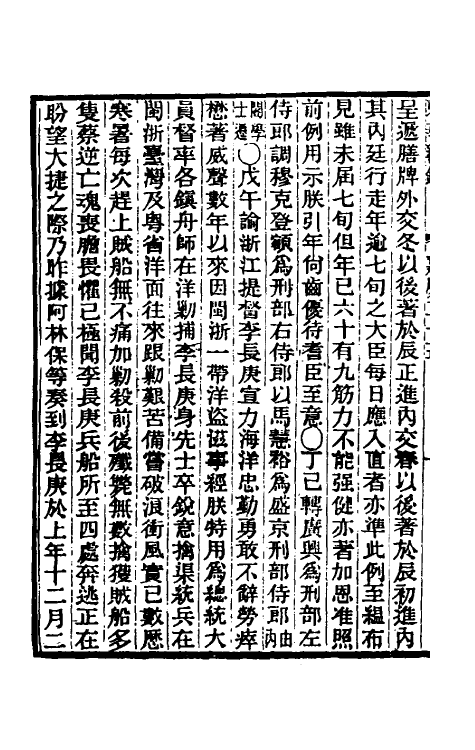 呈遞膳牌外交冬以後著於辰正進內交春以後著於辰初進內
其內廷行走年逾七旬之大臣每日應入值者亦準此例至縕布
見雖未屆七旬但年已六十有九筋力不能强健亦著加恩准照
前例用示朕引年尙齒優待耆臣至意〇丁巳轉廣興爲刑部左
侍郎調穆克登額爲刑部右侍郎以馬慧裕爲盛京刑部侍郎由內
閣學士遷〇戊午諭浙江提督李長庚宣力海洋忠勤勇敢不辭勞瘁
懋著威聲數年以來因閩浙一帶洋盜滋事經朕特用爲總統大
員督率各鎭舟師在洋勦捕李長庚身先士卒銳意擒渠統兵在
閩浙臺灣及粤省洋面往來跟勦艱苦備嘗破浪衝風實已數歷
寒暑每次趕上賊船無不痛加勦殺前後殲斃無數擒獲賊船多
隻蔡逆亡魂喪膽畏懼已極聞李長庚兵船所至四處奔逃正在
盼望大捷之際乃昨據阿林保等奏到李長庚於上年十二月二